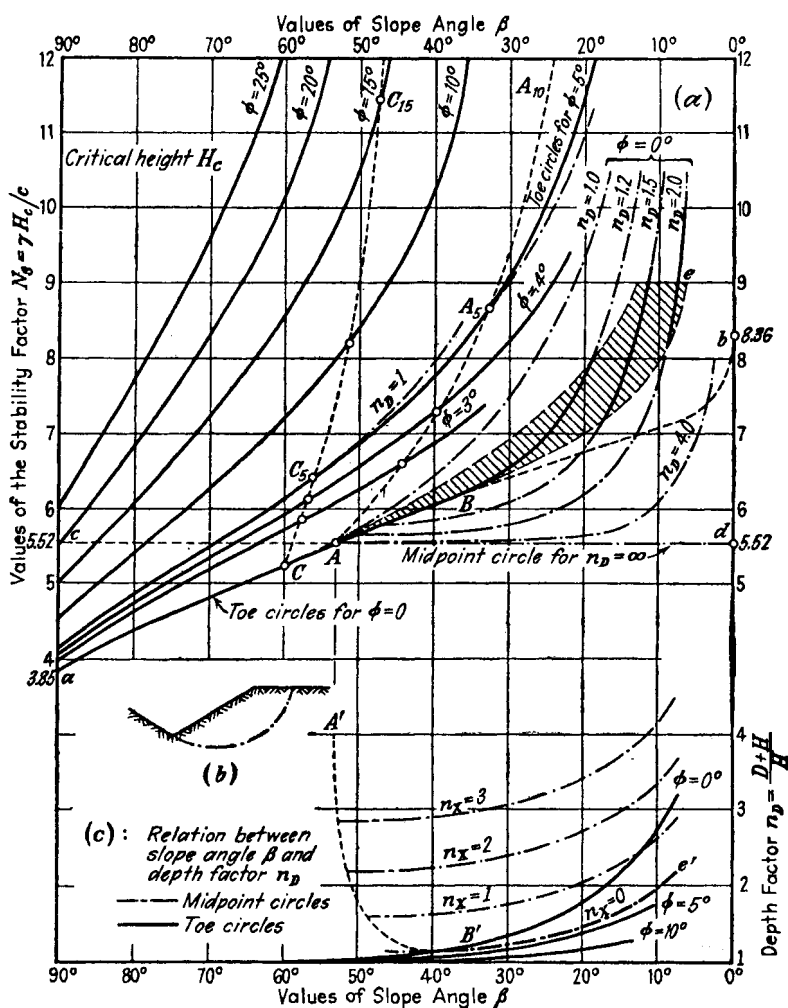 Values of Slope Angle β
90° 80° 70° 60° 50° 40° 30° 20° 10° 0°
12
11
10
9
8
7
6
5.52
5
4
3.85
Values of the Stability Factor Ns = γ Hc/c
φ=25°
φ=20°
φ=15°
φ=10°
C15
A10
Toe circles for φ=5°
(a)
Critical height Hc
φ=0°
nD=1.0
nD=1.2
nD=1.5
nD=2.0
φ=4°
e
A5
b 8.36
nD=1
φ=3°
C5
B
nD=4.0
c
C
A
d 5.52
Midpoint circle for nD=∞
Toe circles for φ=0
a
12
11
10
9
8
7
6
5
(b)
A'
(c): Relation between
slope angle β and
depth factor nD
Midpoint circles
Toe circles
nx=3
nx=2
nx=1
nx=0
φ=0°
e'
φ=5°
φ=10°
B'
4
3
2
1
Depth Factor nD = D+H/H
90° 80° 70° 60° 50° 40° 30° 20° 10° 0°
Values of Slope Angle β